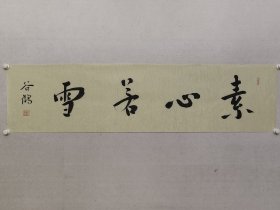 素心若雪
谷鸿